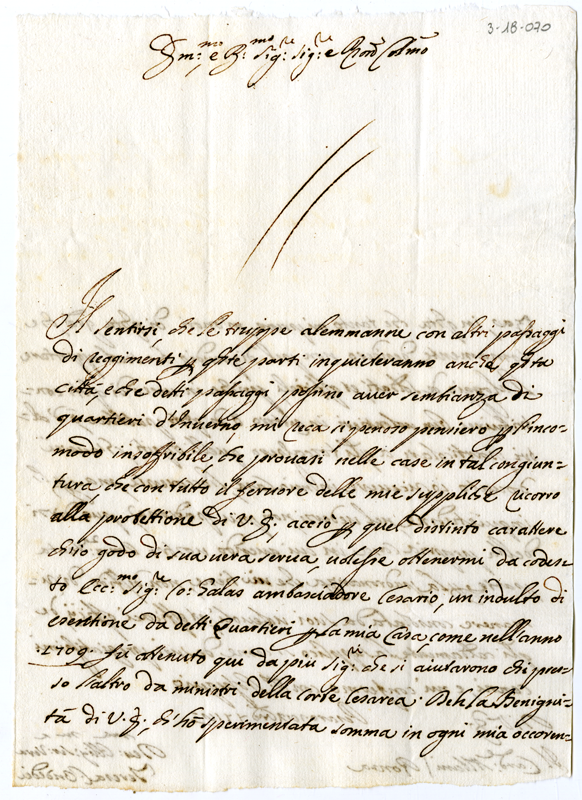 3-18-070
Em:mo e R:mo Sig:re Sig:re e Pron Colmo
Il sentirsi, che le truppe alemanne con altri passaggi
di reggimenti p qste parti inquieteranno anche qsta
Città, e che detti passaggi possino aver sembianza di
quartieri d'Inverno, mi reca sì penoso pensiero p l'inco=
modo insoffribile, che provasi nelle case in tal congiun=
tura, che con tutto il fervore delle mie suppliche ricorro
alla protettione di V. E., acciò p quel distinto carattere
ch'io godo di sua vera serva, volesse ottenermi da codes=
to Ecc:mo Sig:r Co: Galas ambasciadore Cesareo, un indulto di
esentione da detti Quartieri p la mia Casa, come nell'anno
1709. fù ottenuto qui da più Sig:ri che si aiutarono chi pres=
so l'altro da ministri della corte Cesarea. Deh la Benigni=
tà di V. E., ch'hò sperimentata somma in ogni mia occoren=